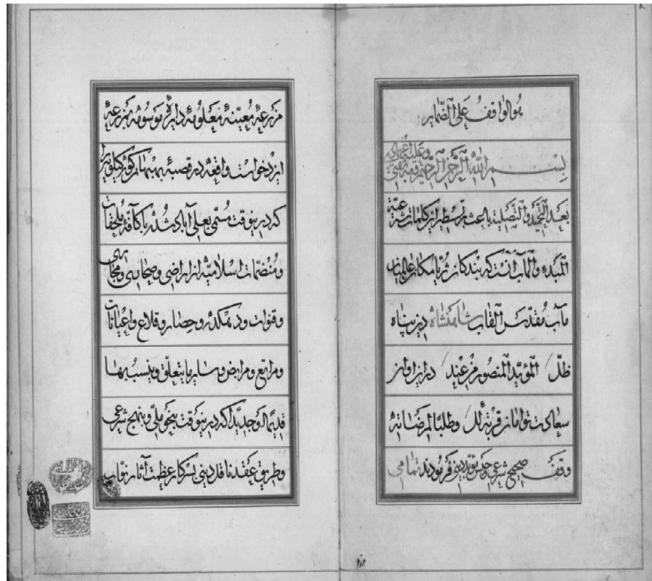 هو الواقف علی الضمایر
بسم الله الرحمن الرحیم
بعد التحمید و التصلیه باعث بر تسطیر این کلمات شرعیة
المبدء و المآب آنست که بندکان ثریا مکان عالمیان
مآب مقدس القاب شاهنشاه دین پناه
ظل المؤید المنصور من عند در این اوان
سعادت توامان قربة لله و طلبا لمرضاته
وقف صحیح شرعی و حبس مؤید دینی فرمودند تمامی
مزرعهٔ معینهٔ معلومهٔ دایرهٔ موسومه بمزرعهٔ
ایزدخواست واقعه در قصبهٔ
که در ینوقت مسمی بعلی آباد شده با کافه ملحقات
و منضمات اسلامیه از اراضی و صحاری و مجاری
و قنوات و دهکده و حصار و قلاع و اعیانات
و مراتع و مرابض و سایر ما یتعلق و ینسب بها
قدیما و جدیدا که در ینوقت بنحو ملی و نهج شرعی
و طریق عقد نافذ دینی بسرکار عظمت آثار نواب